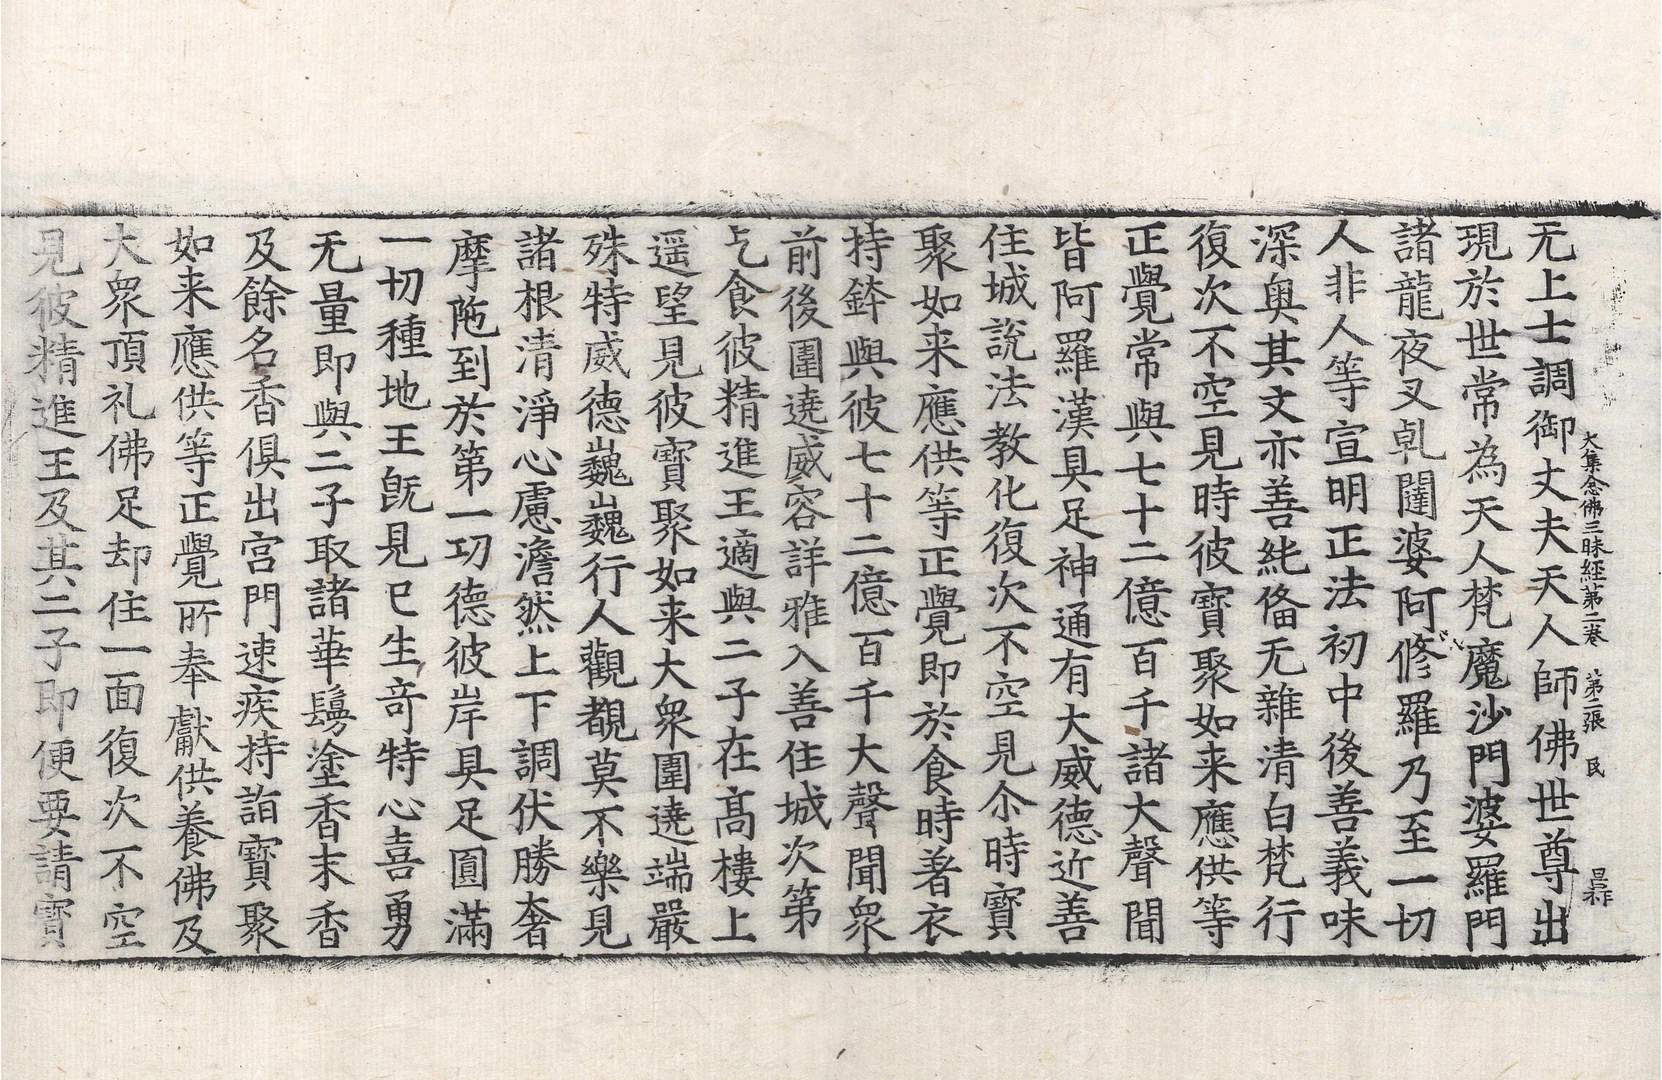 大集念佛三昧經第二卷　第二張　民
无上士調御丈夫天人師佛世尊出
現於世常為天人梵魔沙門婆羅門
諸龍夜叉乹闥婆阿修羅乃至一切
人非人等宣明正法初中後善義味
深奥其文亦善純俻无雜清白梵行
復次不空見時彼寶聚如来應供等
正覺常與七十二億百千諸大聲聞
皆阿羅漢具足神通有大威德近善
住城說法教化復次不空見尒時寶
聚如来應供等正覺即於食時著衣
持鉢與彼七十二億百千大聲聞衆
前後圍遶威容詳雅入善住城次第
乞食彼精進王適與二子在髙樓上
遥望見彼寶聚如来大衆圍遶端嚴
殊特威德巍巍行人觀覩莫不樂見
諸根清淨心慮澹然上下調伏勝奢
摩陁到於第一功德彼岸具足圓滿
一切種地王旣見已生竒特心喜勇
无量即與二子取諸華鬘塗香末香
及餘名香俱出宫門速疾持詣寶聚
如来應供等正覺所奉獻供養佛及
大衆頂礼佛足却住一面復次不空
見彼精進王及其二子即便要請寶